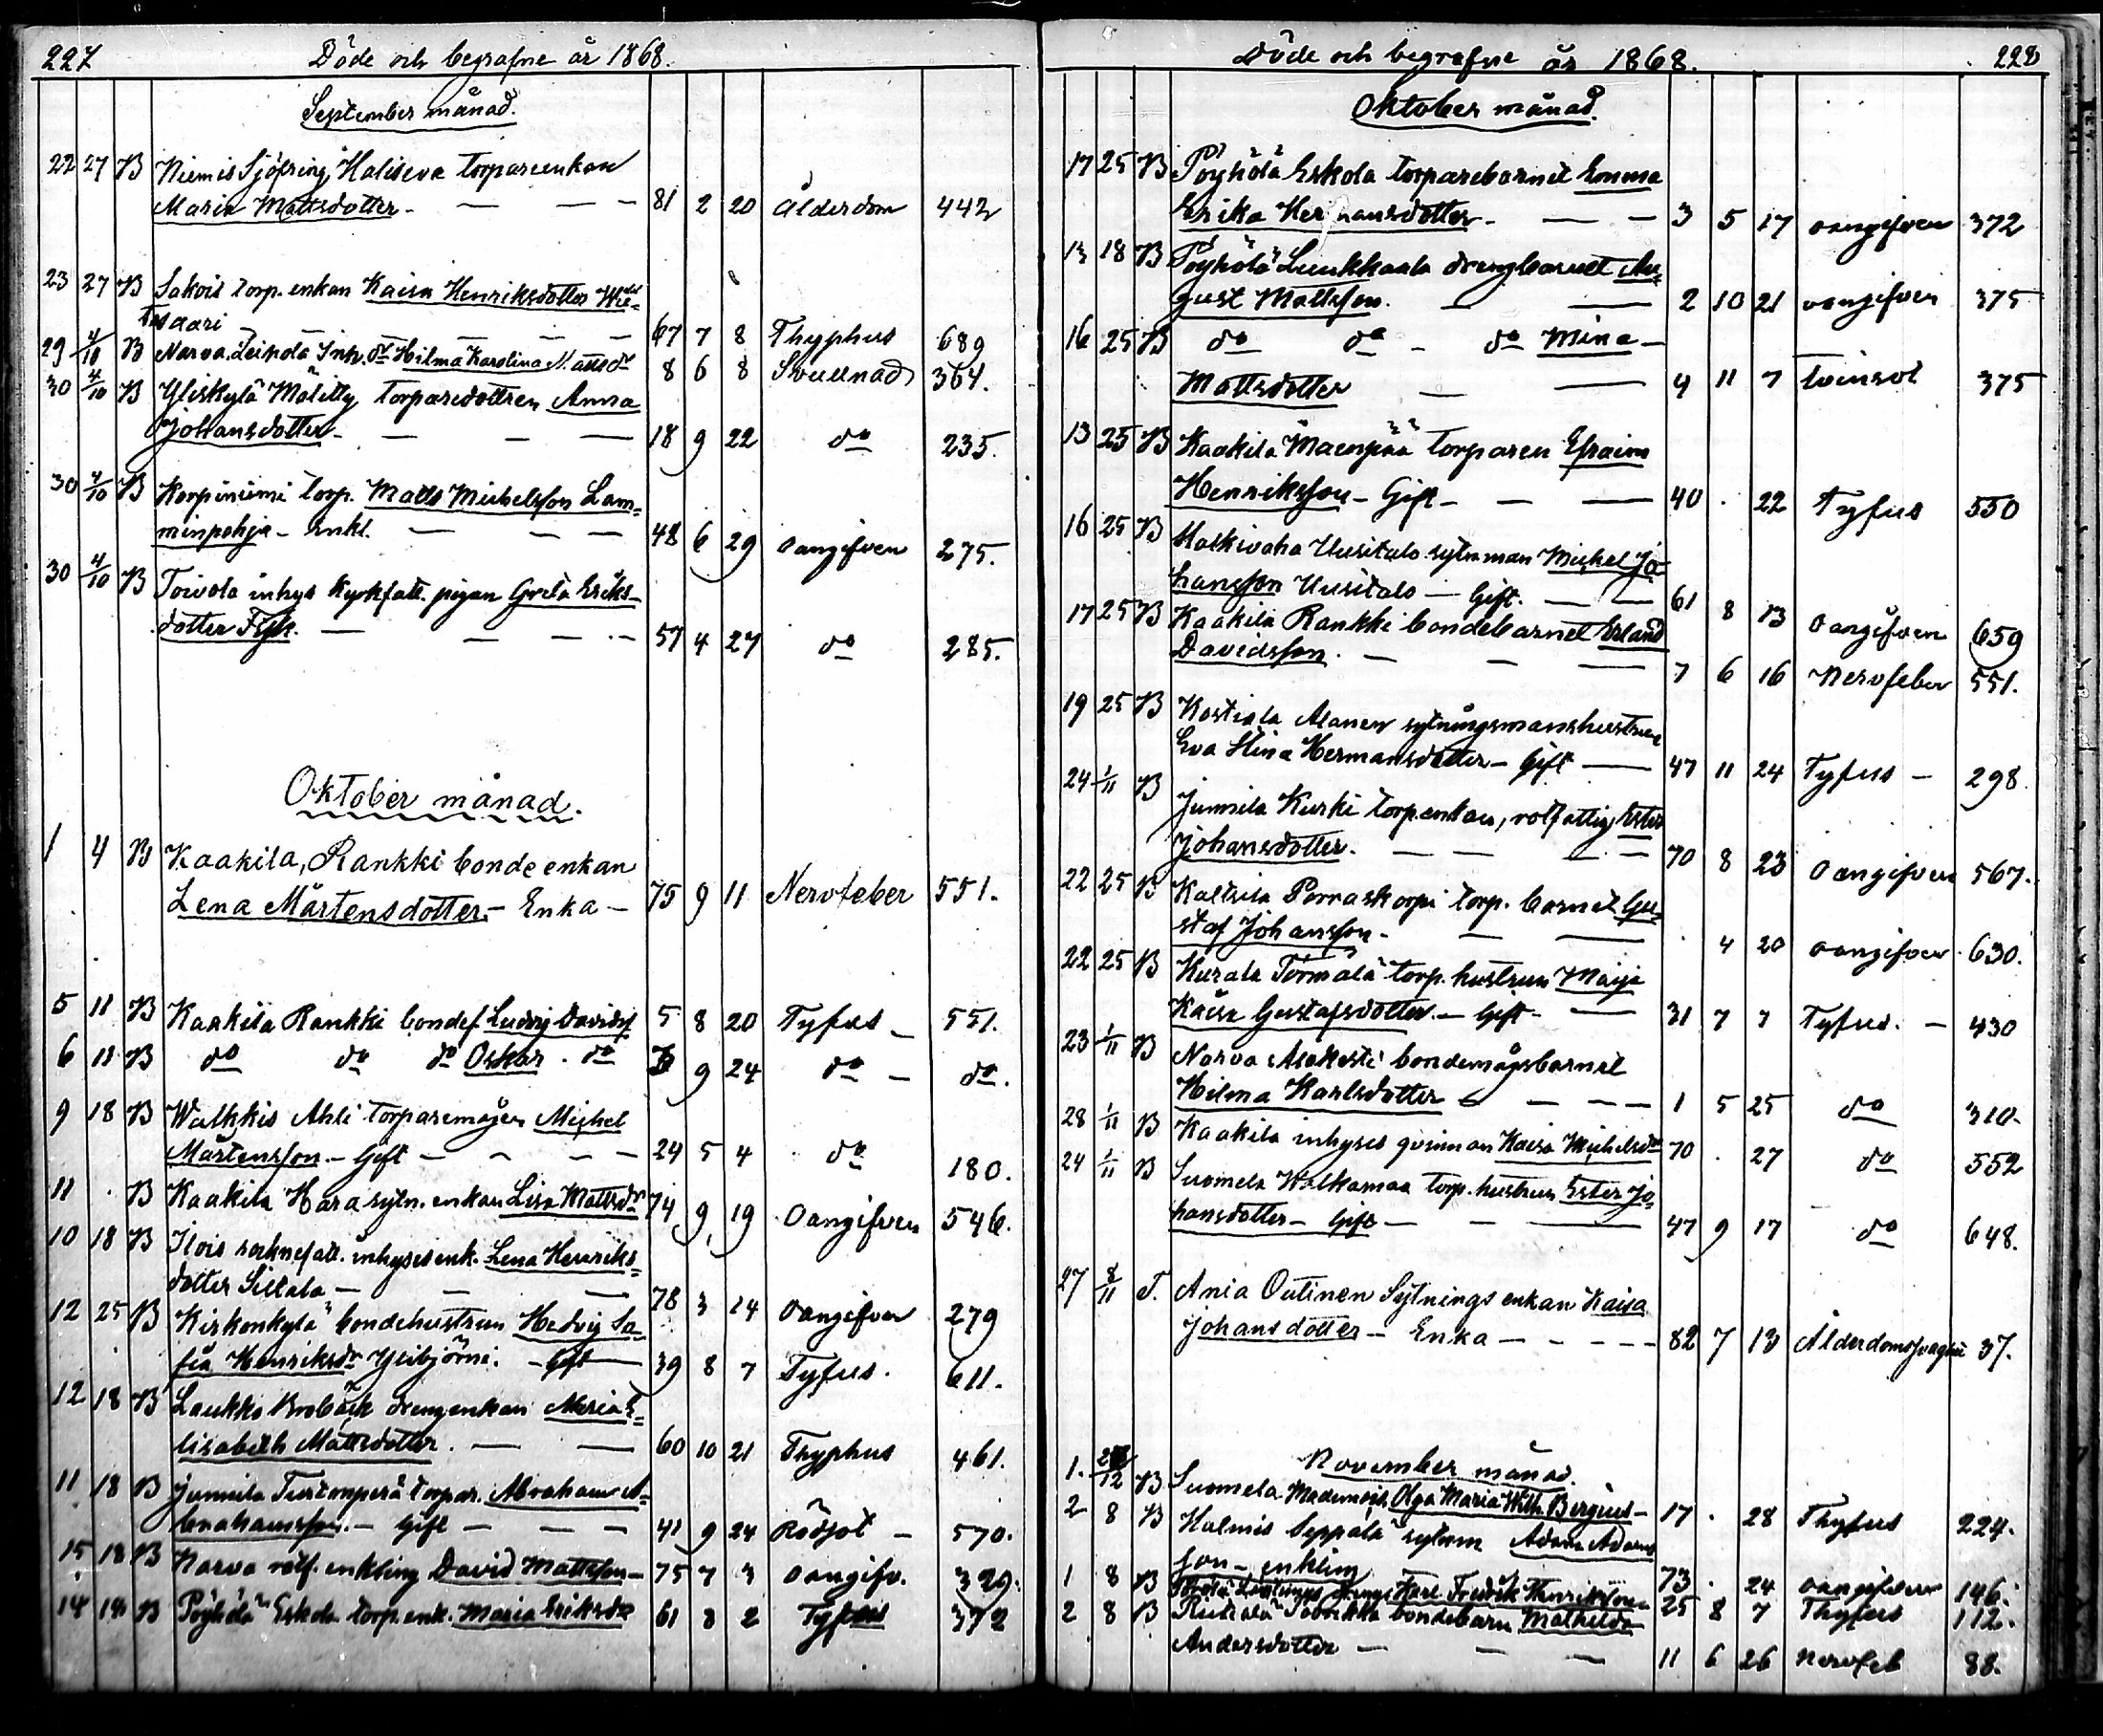 227 Döde och begrafne år 1868.
September månad.
22 27 B Niemis Sjöfring, Haliseva torpareenkan
Maria Mattsdotter - 81 2 20 ålderdom 442
23 27 B Sakois torp. enkan Kaisa Henriksdotter
67 7 8 Thyphus 689
29 4/10 B Narva Leipola Inh. dr Hilma Karolina 8 6 8 Svullnad 364.
30 4/10 B Yliskylä Mälitty torparedottren Anna
Johansdotter - 18 9 22 do 235.
30 4/10 B Korpiniemi torp. Matts Michelsson Lam-
minpohja - Enkl. 48 6 29 oangifven 275.
30 4/10 B Toivola inhys kyrkfatt. pigan Greta Eriks-
dotter 57 4 27 do 285.
Oktober månad.
1 4 B Kaakila, Rankki bonde enkan
Lena Mårtensdotter - Enka - 75 9 11 Nervfeber 551.
5 11 B Kaakila Rankki bondes. Ludvig Davidsf 5 8 20 Tyfus - 551.
6 11 B do do do Oskar do 9 24 do - do.
9 18 B Walkkis Ahli torparemågen Michel
Mårtensson - Gift - 24 5 4 do 180.
11 . B Kaakila Hara sytn. enkan Lisa Mattsdr 74 9 19 Oangifven 546.
10 18 B Ilois socknefatt. inhyses enk. Lena Henriks-
dotter Siltala - 78 3 14 oangifven 279
12 25 B Kirkonkylä bondehustrun Hedvig So-
fia Henriksdr Ylibjörni. - Gift 39 8 7 Tyfus. 611.
12 18 B Laukko Brobäck drengenkan Maria E-
lisabeth Mattsdotter. 60 10 21 Thyphus 461.
11 18 B Junnila torpar. Abraham A-
brahamsson. - Gift - 41 9 24 Rödsot - 570.
15 18 B Narva rotf. enkling David Mattsson - 75 7 3 oangifv. 329.
14 18 B Pöyhölä Eskola torp. enk. Maria Eriksdr 61 8 2 Tyfus 372
Döde och begrafne år 1868. 228
Oktober månad.
17 25 B Pöyhölä Eskola torparebarnet Emma
Erika Hermansdotter - 3 5 17 oangifven 372
13 18 B Pöyhölä Luukkaala drengbarnet Au-
gust Mattsson. 2 10 21 oangifven 375
16 25 B do do - do Mina -
Mattsdotter 4 11 7 tvinsot 375
13 25 B Kaakila Mäenpää torparen Efraim
Henriksson - Gift - 40 . 22 Tyfus 550
16 25 B Halkivaha Uusitalo sytn.man Michel Jo-
hansson Uusitalo - Gift. 61 8 13 oangifven 659
17 25 B Kaakila Rankki bondebarnet Erland
Davidsson. 7 6 16 Nervfeber 551.
19 25 B Kostiala Alanen sytningsmanshustrun
Eva Stina Hermansdotter - Gift 47 11 24 Tyfus - 298.
24 1/11 B Junnila Kurki torp.enkan, rotfattig Ester
Johansdotter. 70 8 23 Oangifven 567.
22 25 B Kaltsila Porraskorpi torp. barnet Gu-
staf Johansson - . 4 20 oangifven 630.
22 25 B Kurala Törmälä torp. hustrun Maija
Kaisa Gustafsdotter. - Gift - 31 7 7 Tyfus. - 430
23 1/11 B Narva Alakesti bondemågsbarnet
Hilma Karlsdotter 1 5 25 do 310.
28 1/11 B Kaakila inhyses qvinnan Kaisa Michelsdr 70 . 27 do 552
24 1/11 B Suomela Walkamaa torp. hustrun Ester Jo-
hansdotter - Gift - 47 9 17 do 648.
27 8/11 T. Ania Outinen Sytnings enkan Kaisa
Johansdotter - Enka - 82 7 13 37.
November månad.
1. B Suomela Mademois. Olga Maria Wilh. Bergius - 17 . 28 Thyfus 224.
2 8 B Halmis Seppälä sytnm Adam Adams
son - enkling 73 . 24 oangifven 146.
1 8 B Karl Fredrik Henriksson 25 8 7 Thyfus 112.
2 8 B bondebarn Mathilda
Andersdotter - 11 6 26 nervfeb 88.